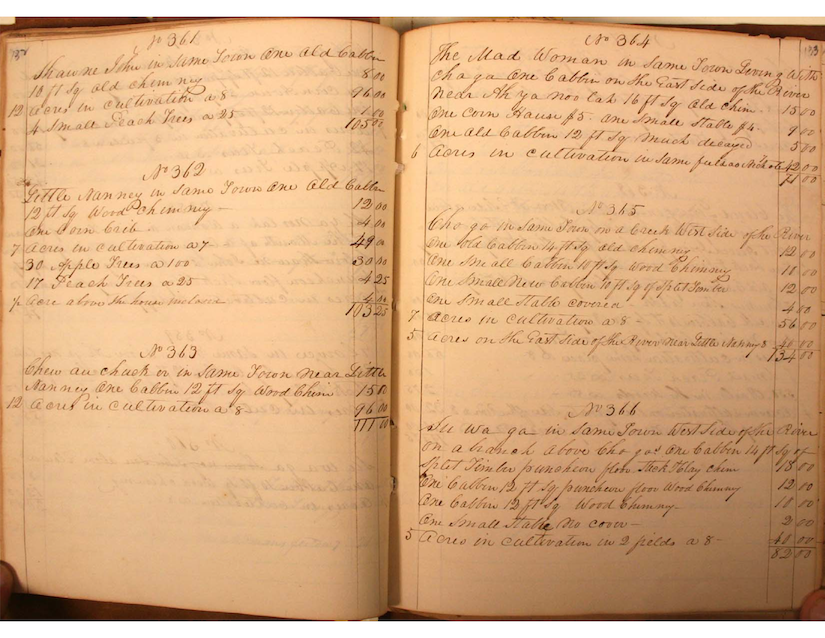 No 361
Shawne John in Same Town One Old Cabbin
10 ft Sq old chimney 8 00
12 Acres in cultivation a 8 - 96 00
4 Small Peach Trees a 25 1 00
105 00
No 362
Little Nanney in Same Town One Old Cabbin
12 ft Sq Wood Chimney - 12 00
One Corn Crib. 4 00
7 Acres in cultivation a 7 49 00
30 Apple Trees a 100 30 00
17 Peach Trees a 25 4 25
Acre above the house
103 25
No 363
Chew au chuck or in Same Town near Little
Nanney One Cabbin 12 ft Sq Wood Chim 15 00
12 Acres in Cultivation a 8 - 96 00
111 00
No 364
The Mad Woman in Same Town Living With
Cho ga One Cabbin on the East Side of the River
near Ah ya noo lah 16 ft Sq Old chim. 15 00
One Corn House $5. One Small Stable $4. 9 00
One Old Cabbin 12 ft Sq Much decayed 5 00
6 Acres in cultivation in Same field as 42 00
71 00
No 365
Cho ga in Same Town on a Creek West Side of the River
One Old Cabbin 14 ft Sq old chimney 12 00
One Small Cabbin 10 ft Sq Wood Chimney 10 00
One Small New Cabbin 10 ft Sq of Split Timber 12 00
One Small Stable covered 4 00
7 Acres in cultivation a 8 - 56 00
5 Acres on the East Side of the River near Little Nanney 8 40 00
134 00
No 366
Su wa ga in Same Town West Side of the River
on a branch above Cho gas One Cabbin 14 ft Sq of
Split Timber puncheon floor Clay chim 18 00
One Cabbin 12 ft Sq puncheon floor Wood Chimney 12 00
One Cabbin 12 ft Sq Wood Chimney - 10 00
One Small Stable No cover - 2 00
5 Acres in cultivation in 2 fields a 8 - 40 00
82 00